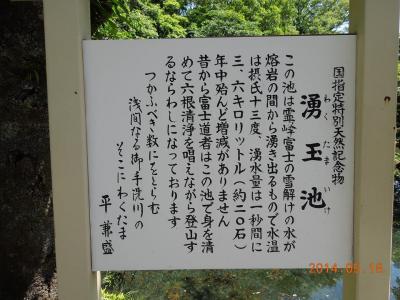 国指定特別天然記念物
湧玉池
わくたまいけ
この池は霊峰富士の雪解けの水が
熔岩の間から湧き出るもので水温
は摂氏十三度、湧水量は一秒間に
三、六キロリットル(約二〇石)
年中殆んど増減がありません
昔から富士道者はこの池で身を清
めて六根清浄を唱えながら登山す
るならわしになっております
つかふべき数にをとらむ
浅間なる御手洗川の
そこにわくたま
平兼盛
2014.09.16